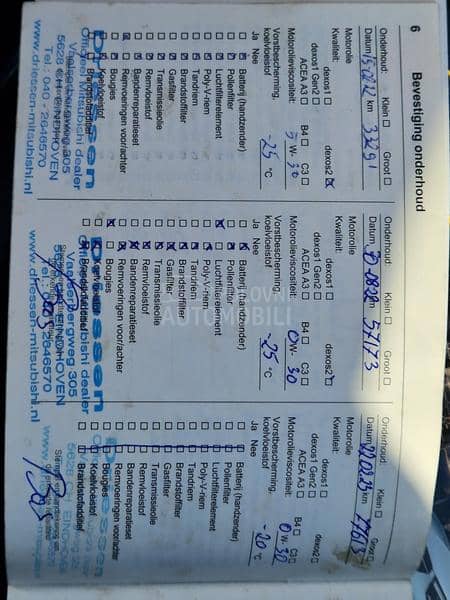 6 Bevestiging onderhoud
Onderhoud: Klein Groot
Datum km 33291
Motorolie
Kwaliteit:
dexos1 dexos2
dexos1 Gen2
ACEA A3 B4 C3
Motorolieviscositeit: 5W-30
Vorstbescherming,
koelvloeistof -25 °C
Ja Nee
Batterij (handzender)
Pollenfilter
Luchtfilterelement
Poly-V-riem
Tandriem
Brandstoffilter
Gasfilter
Transmissieolie
Remvloeistof
Bandenreparatieset
Remvoeringen voor/achter
Bougies
Koelvloeistof
Driessen
Officieel Mitsubishi dealer
Vaalserbergweg 305
5628 CH EINDHOVEN
Tel.: 040 - 2646570
www.driessen-mitsubishi.nl
Onderhoud: Klein Groot
Datum km 57173
Motorolie
Kwaliteit:
dexos1 dexos2
dexos1 Gen2
ACEA A3 B4 C3
Motorolieviscositeit: 0W-30
Vorstbescherming,
koelvloeistof -25 °C
Ja Nee
Batterij (handzender)
Pollenfilter
Luchtfilterelement
Poly-V-riem
Tandriem
Brandstoffilter
Gasfilter
Transmissieolie
Remvloeistof
Bandenreparatieset
Remvoeringen voor/achter
Bougies
Onderhoud: Klein Groot
Datum km
Motorolie
Kwaliteit:
dexos1 dexos2
dexos1 Gen2
ACEA A3 B4 C3
Motorolieviscositeit: 0W-30
Vorstbescherming,
koelvloeistof -20 °C
Ja Nee
Batterij (handzender)
Pollenfilter
Luchtfilterelement
Poly-V-riem
Tandriem
Brandstoffilter
Gasfilter
Transmissieolie
Remvloeistof
Bandenreparatieset
Remvoeringen voor/achter
Bougies
Koelvloeistof
Brandstoffilter
AUTOMOBILI